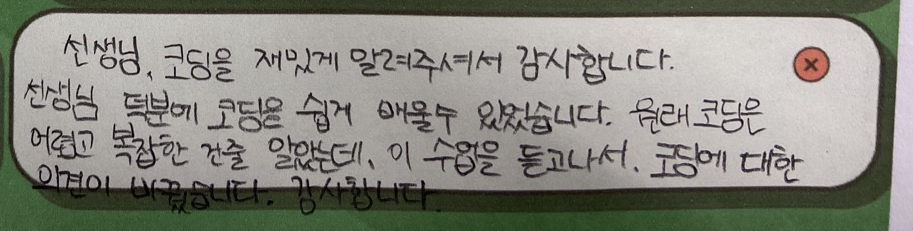 선생님, 코딩을 재밌게 알려주셔서 감사합니다.
선생님 덕분에 코딩을 쉽게 배울수 있었습니다. 원래 코딩은
어렵고 복잡한 건줄 알았는데, 이 수업을 듣고나서, 코딩에 대한
의견이 바꼈습니다. 감사합니다.